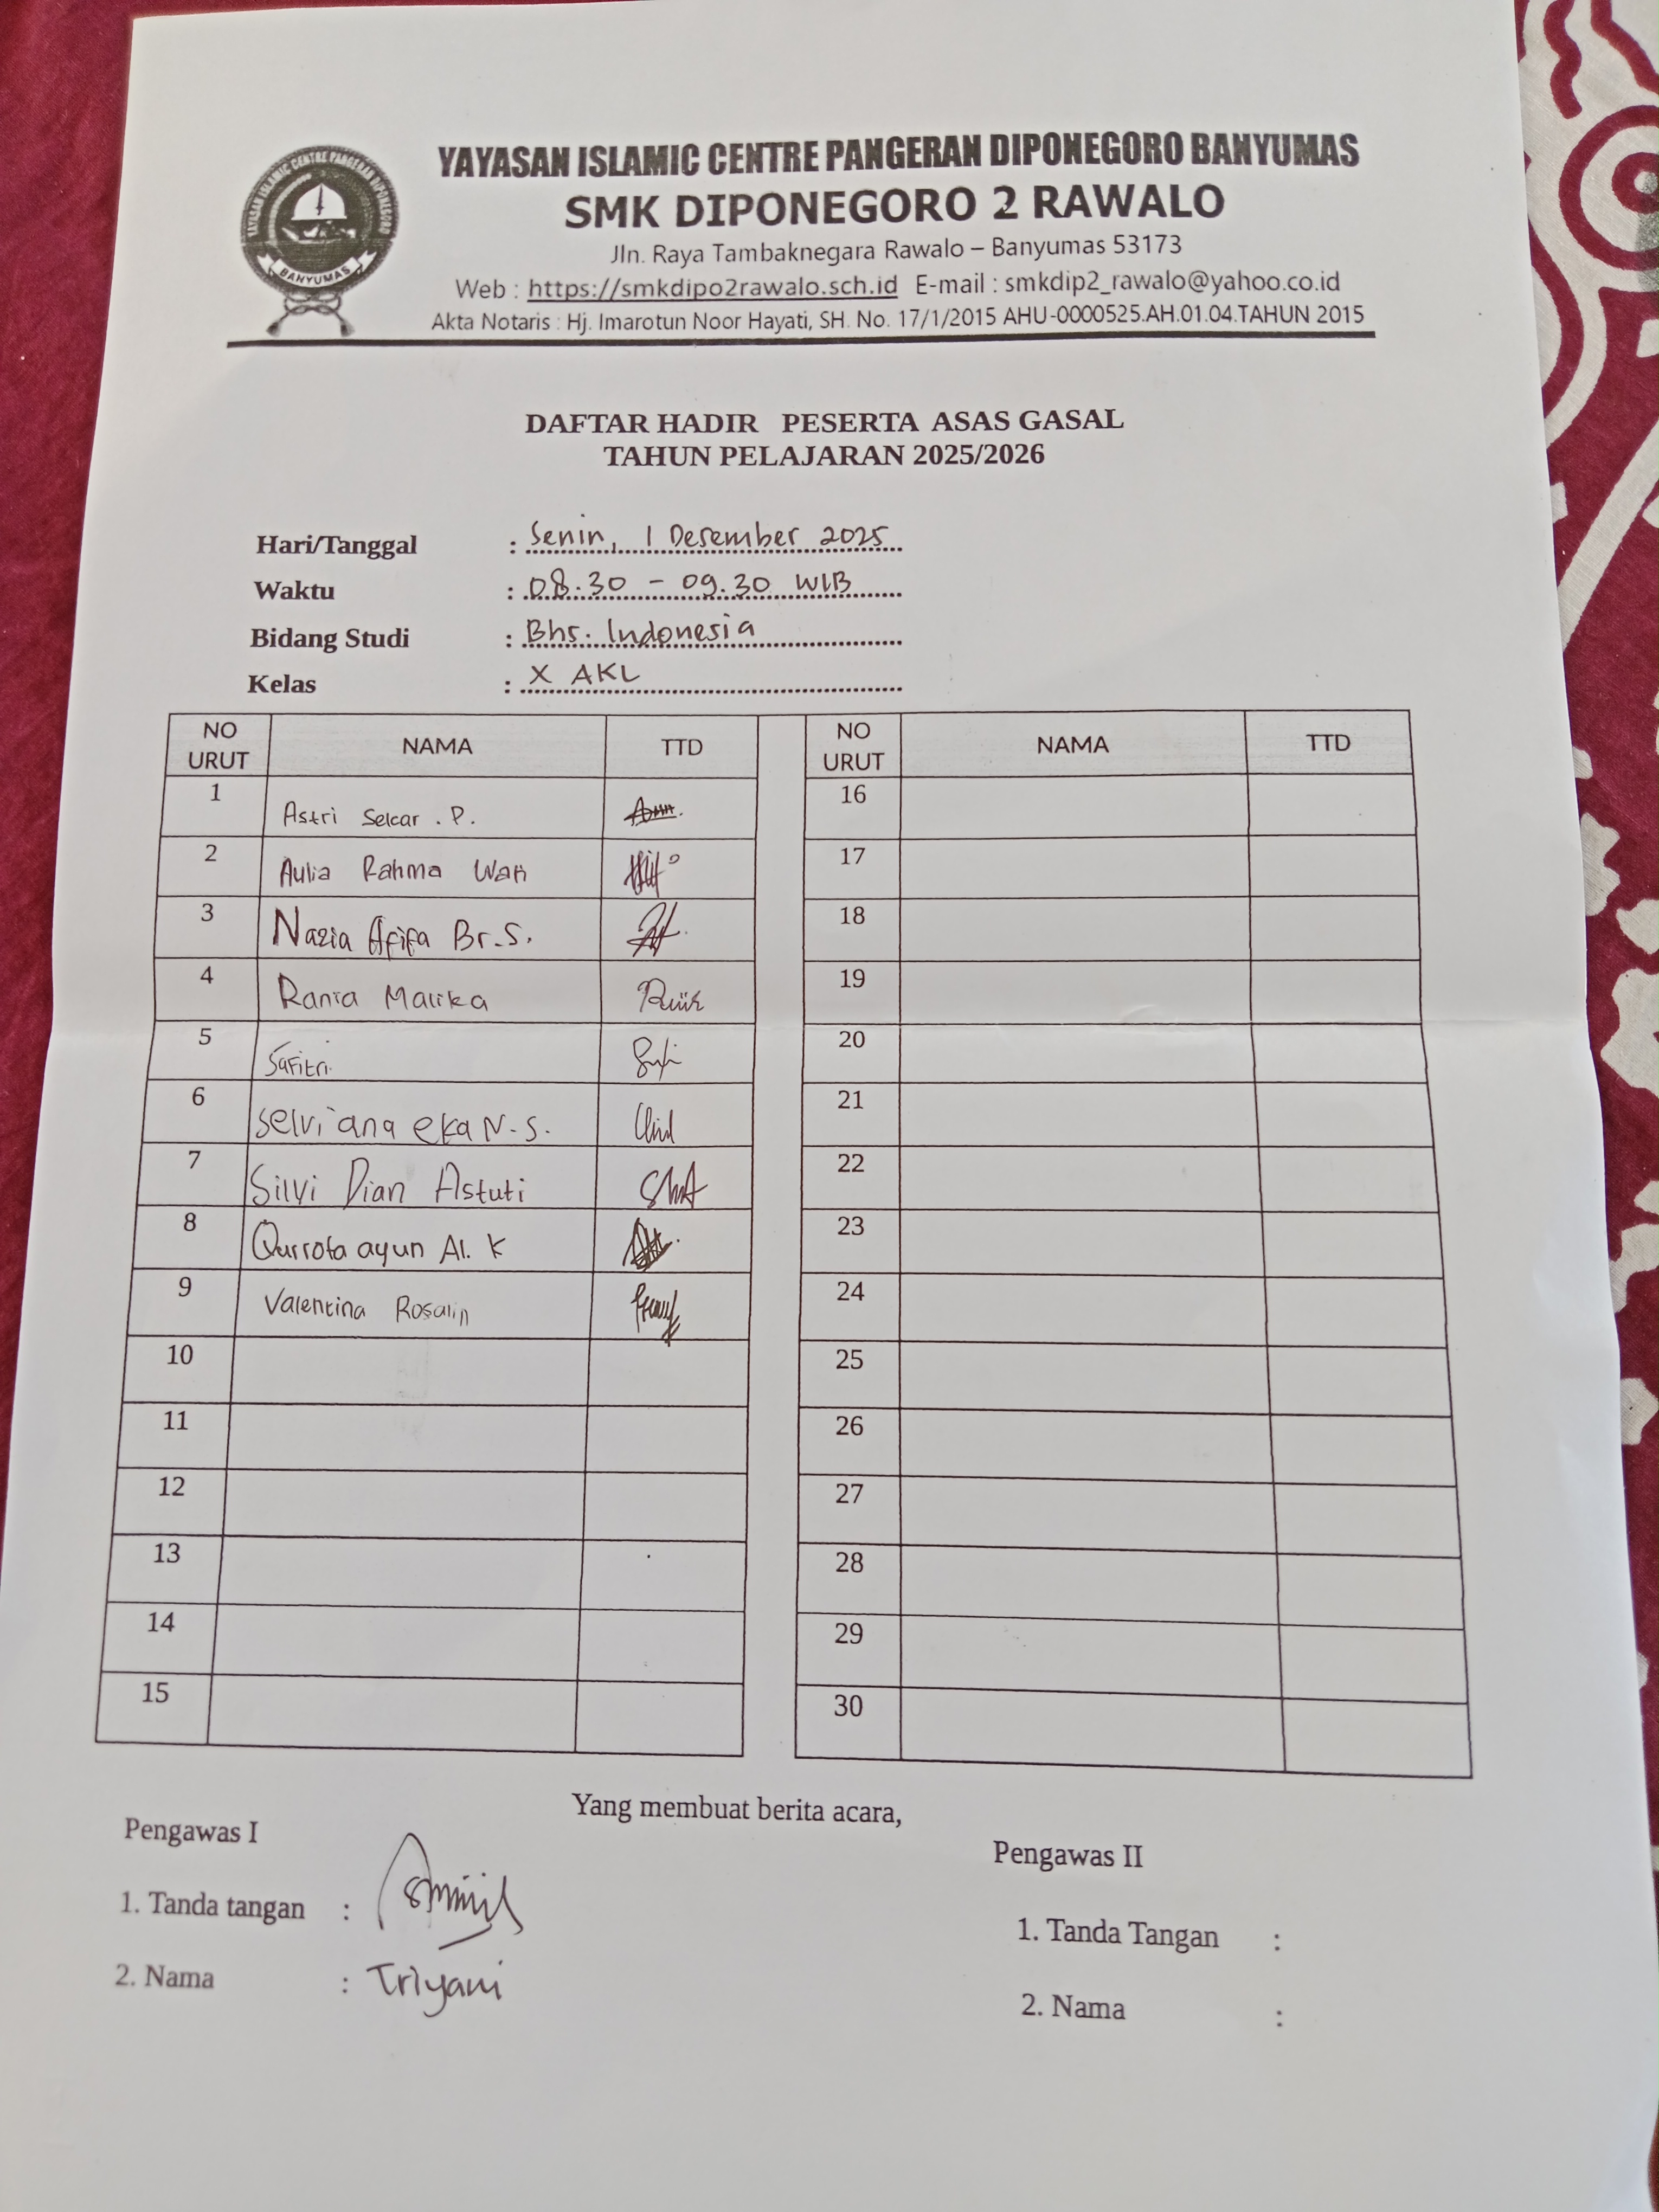 YAYASAN ISLAMIC CENTRE PANGERAN DIPONEGORO BANYUMAS
SMK DIPONEGORO 2 RAWALO
Jln. Raya Tambaknegara Rawalo – Banyumas 53173
Web : https://smkdipo2rawalo.sch.id E-mail : smkdip2_rawalo@yahoo.co.id
Akta Notaris : Hj. Imarotun Noor Hayati, SH. No. 17/1/2015 AHU-0000525.AH.01.04.TAHUN 2015
YAYASAN ISLAMIC CENTRE PANGERAN DIPONEGORO
BANYUMAS
DAFTAR HADIR PESERTA ASAS GASAL
TAHUN PELAJARAN 2025/2026
Hari/Tanggal : Senin, 1 Desember 2025
Waktu : 08.30 – 09.30 WIB
Bidang Studi : Bhs. Indonesia
Kelas : X AKL
NO URUT NAMA TTD NO URUT NAMA TTD
1 Astri Sekar . P. 16
2 Aulia Rahma Wati 17
3 Nazia Afifa Br.S. 18
4 Rania Malika 19
5 Safitri 20
6 Selviana eka N.S. 21
7 Silvi Dian Astuti 22
8 Qurrota ayun Al. K 23
9 Valentina Rosalin 24
10 25
11 26
12 27
13 28
14 29
15 30
Yang membuat berita acara,
Pengawas I Pengawas II
1. Tanda tangan : 1. Tanda Tangan :
2. Nama : Triyani 2. Nama :